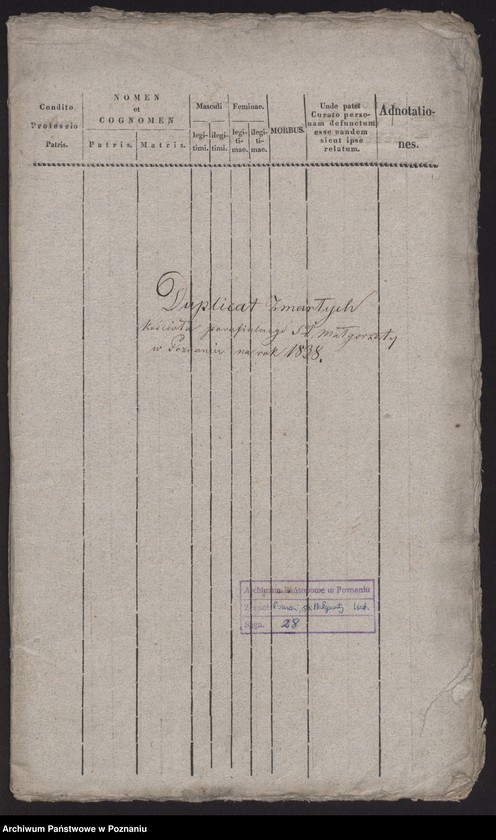 Conditio
Professio
Patris.
NOMEN
et
COGNOMEN
Patris.
Matris.
Masculi
legi-
timi.
ilegi-
timi.
Feminae.
legi-
ti-
mae.
ilegi-
ti-
mae.
MORBUS.
Unde patet
Curato perso-
nam defunctum
esse eandem
sicut ipse
relatum.
Adnotatio-
nes.
Duplicat Zmarłych
Kościoła parafialnego St. Małgorzaty
w Poznaniu na rok 1838.
Archiwum Państwowe w Poznaniu
Zespół
Sygn. 28
Archiwum Państwowe w Poznaniu